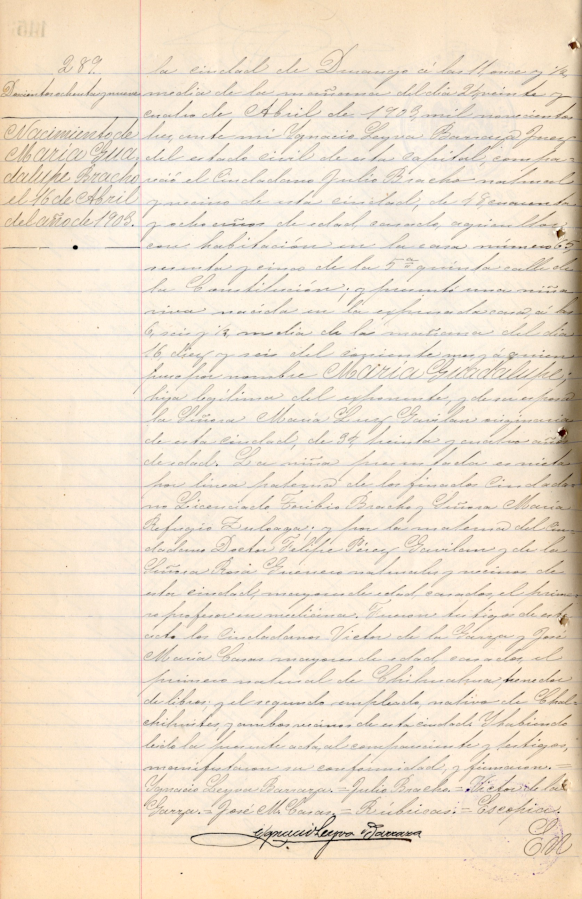 289.
Doscientos ochenta y nueve
Nacimiento de
María Gua-
dalupe Bracho,
el 16 de Abril
del año de 1903.
la ciudad de Durango á las 11 once y ½
media de la mañana del día veinte y
cuatro de Abril de 1903, mil novecientos
tres, ante mi Ygnacio Leyva Barraza Juez
del estado civil de esta capital, compa-
reció el Ciudadano Julio Bracho natural
y vecino de esta ciudad, de 48 cuarenta
y ocho años de edad, casado,
con habitación en la casa número 65
sesenta y cinco de la 5ª quinta calle de
la Constitución; y presentó una niña
viva nacida en la expresada casa, á las
6, seis y ½ media de la mañana del día
16, diez y seis del corriente mes, á quien
puso por nombre María Guadalupe;
hija legítima del exponente, y de su esposa
la Señora María Luz Gavilan originaria
de esta ciudad, de 34 treinta y cuatro años
de edad. La niña presentada es nieta
por linea paterna de los finados Ciudada-
no Licenciado Toribio Bracho y Señora Maria
Refugio Zuloaga; y por la materna del Ciu-
dadano Doctor Felipe Pérez Gavilan y de la
Señora Rosa Guerrero naturales y vecinos de
esta ciudad, mayores de edad, casados, el prime-
ro profesor en medicina. Fueron testigos de este
acto los Ciudadanos Victor de la Garza y José
María Casas mayores de edad, casados, el
primero natural de Chihuahua, tenedor
de libros; y el segundo empleado, nativo de Chal-
chihuites, y ambos vecinos de esta ciudad. Y habiendo
leído la presente acta, al compareciente y testigos,
manifestaron su conformidad, y firmaron. =
Ygnacio Leyva Barraza. = Julio Bracho. = Victor de la
Garza. = José M. Casas. = Rúbricas. = Es copia.
Ygnacio Leyva Barraza
En